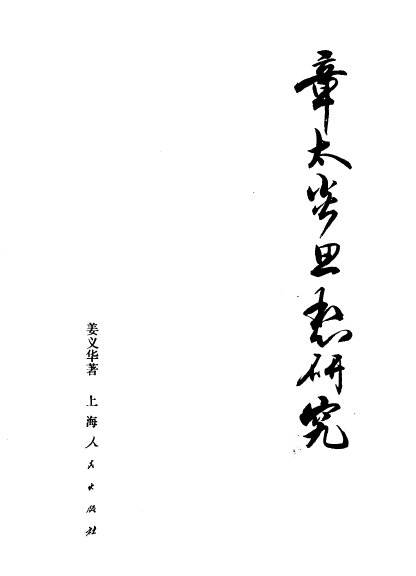 章太炎思想研究
姜义华著 上海人民出版社